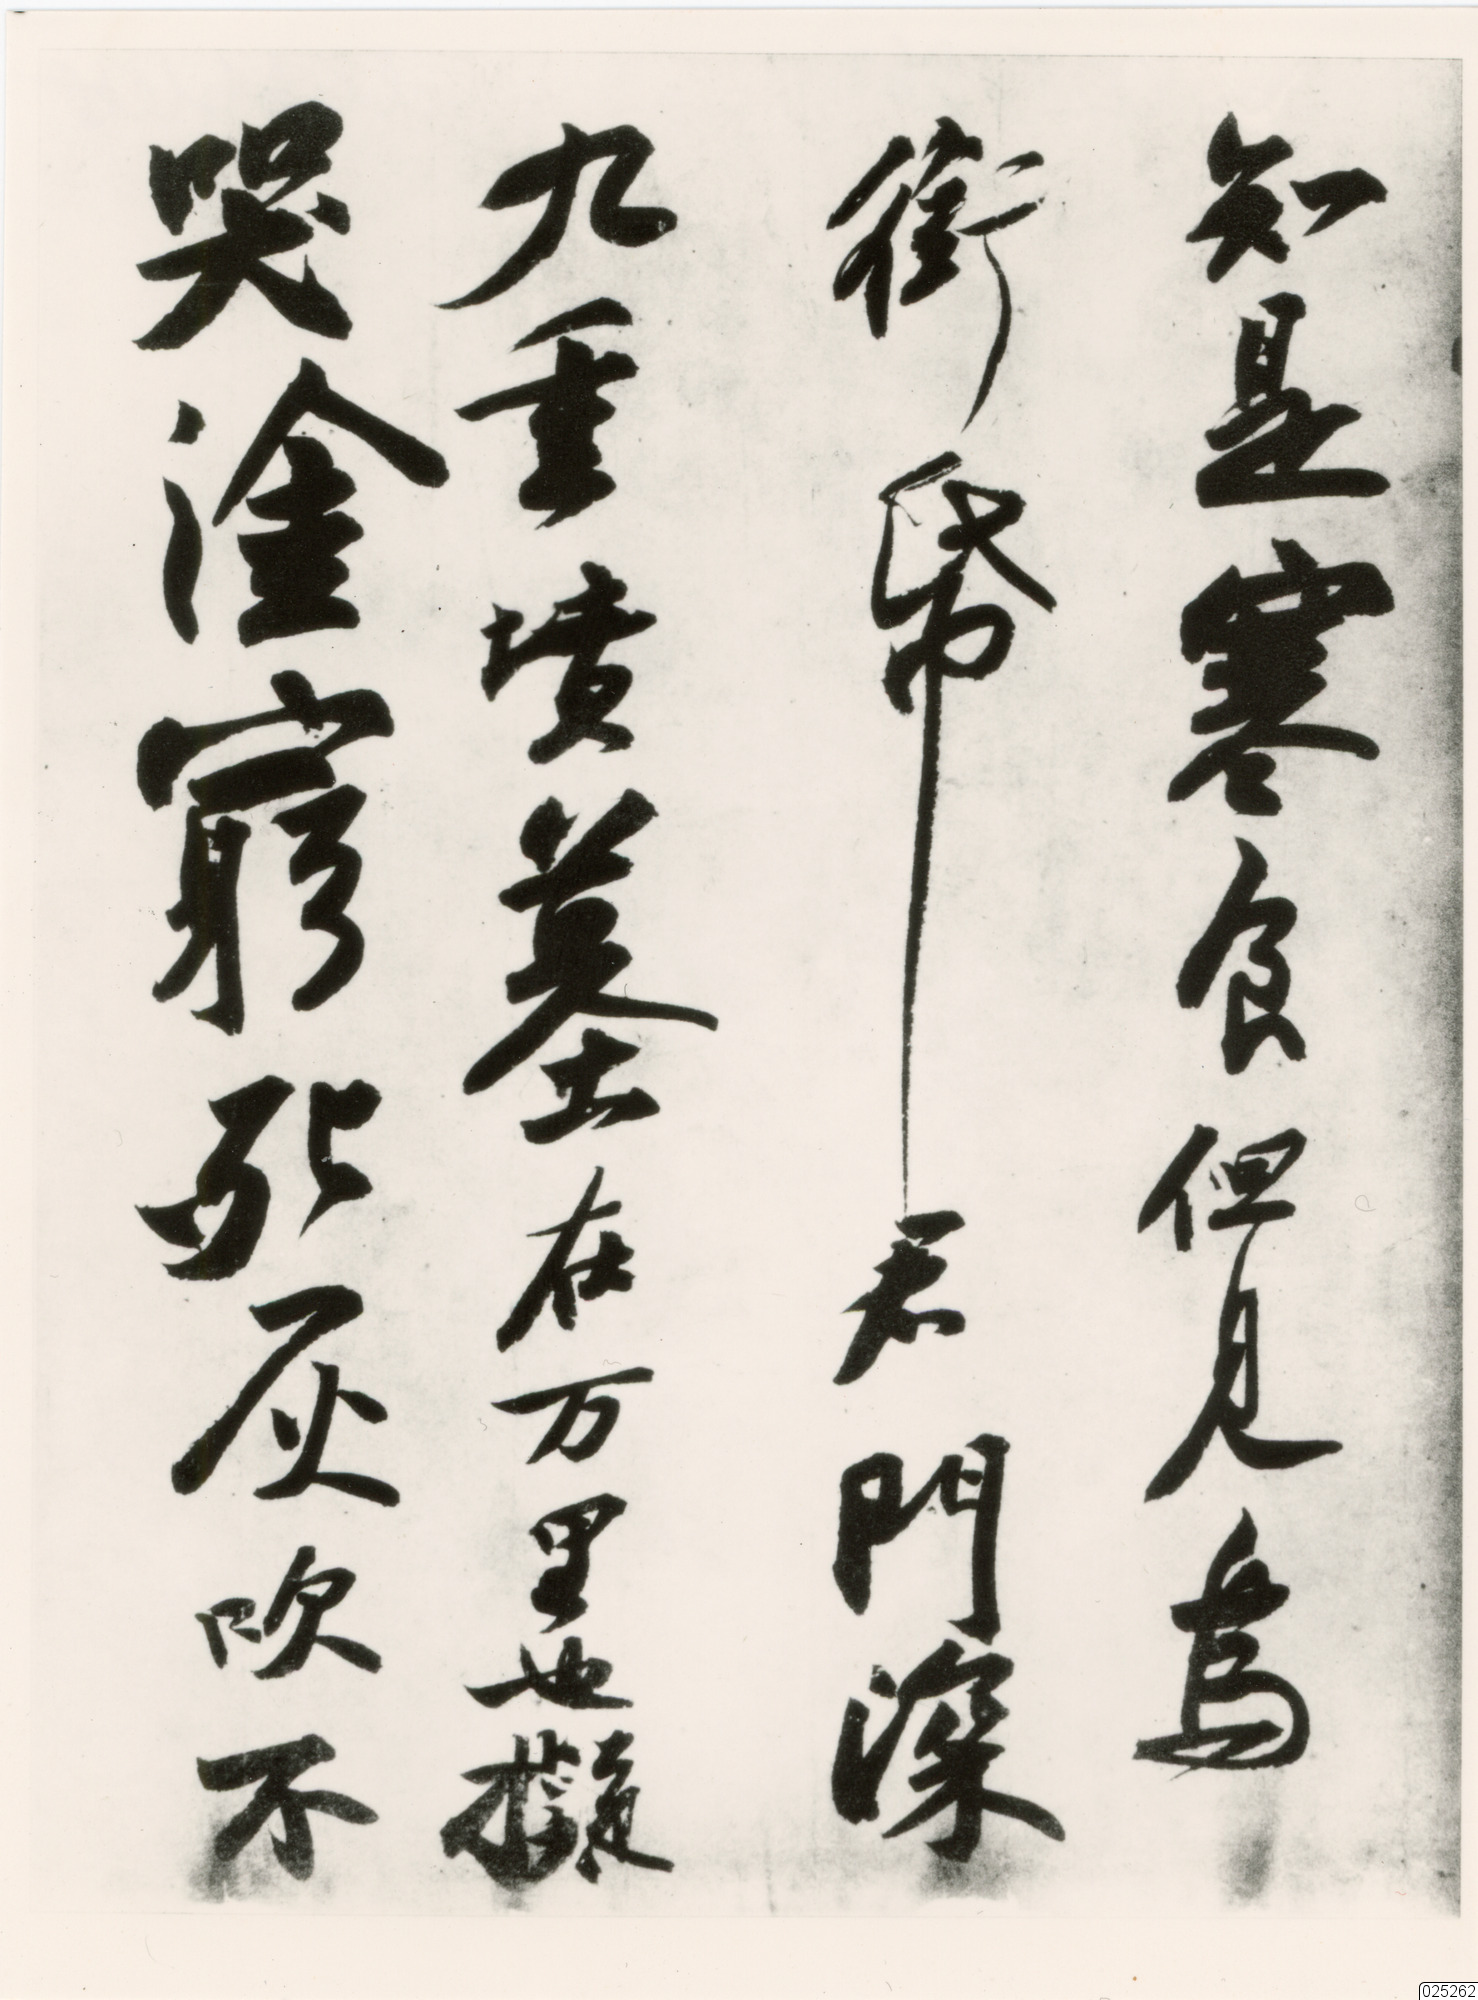 知是寒食但見烏
銜帋君門深
九重墳墓在万里也擬
哭塗窮死灰吹不
025262